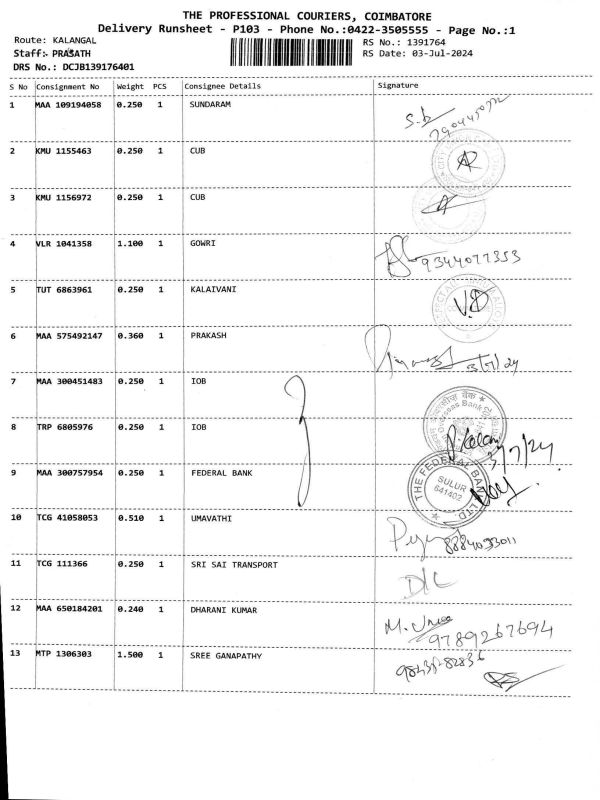 THE PROFESSIONAL COURIERS, COIMBATORE
Delivery Runsheet - P103 - Phone No.:0422-3505555 - Page No.:1
Route: KALANGAL RS No.: 1391764
Staff:- PRASATH RS Date: 03-Jul-2024
DRS No.: DCJB139176401
S No Consignment No Weight PCS Consignee Details Signature
1 MAA 109194058 0.250 1 SUNDARAM
2 KMU 1155463 0.250 1 CUB
3 KMU 1156972 0.250 1 CUB
4 VLR 1041358 1.100 1 GOWRI 9344077353
5 TUT 6863961 0.250 1 KALAIVANI
6 MAA 575492147 0.360 1 PRAKASH 3/7/24
7 MAA 300451483 0.250 1 IOB
8 TRP 6805976 0.250 1 IOB 3/7/24
9 MAA 300757954 0.250 1 FEDERAL BANK THE FEDERAL BANK LTD.
SULUR
641402
10 TCG 41058053 0.510 1 UMAVATHI
11 TCG 111366 0.250 1 SRI SAI TRANSPORT D/C
12 MAA 650184201 0.240 1 DHARANI KUMAR 9789267694
13 MTP 1306303 1.500 1 SREE GANAPATHY